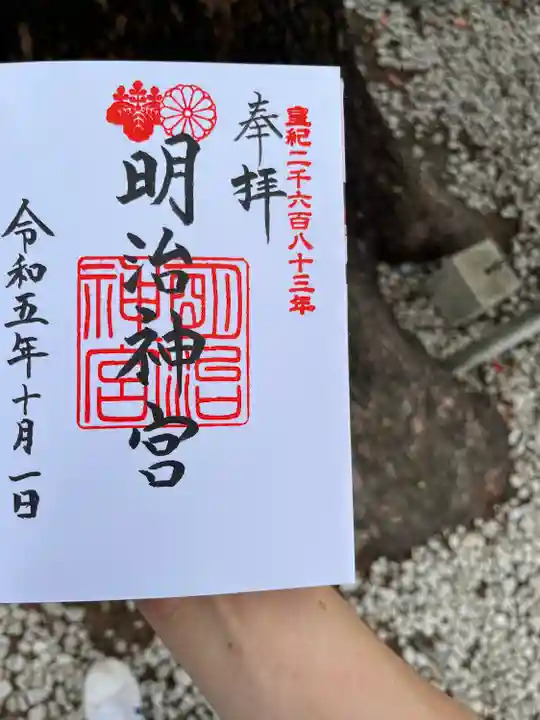 皇紀二千六百八十三年
奉拝
明治神宮
明治神宮
令和五年十月一日